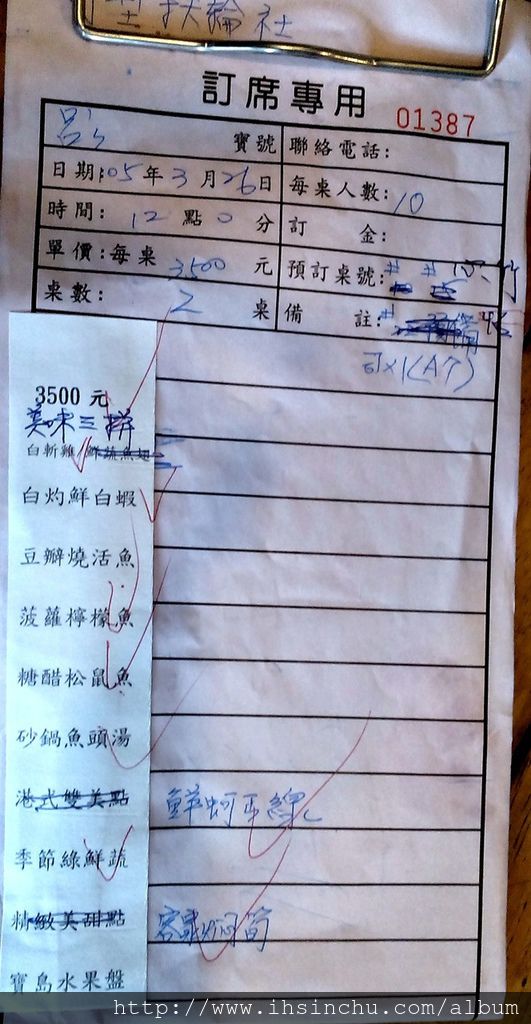 扶輪社
訂席專用
01387
寶號
聯絡電話:
日期:05年3月26日
每桌人數:10
時間:12點0分
訂金:
單價:每桌3500元
預訂桌號:
桌數:2桌
備註:
3500 元
美味三拼
白斬雞/鮮蔬魚翅
白灼鮮白蝦
豆瓣燒活魚
菠蘿檸檬魚
糖醋松鼠魚
砂鍋魚頭湯
港式雙美點 鮮蚵手線
季節綠鮮蔬
精緻美甜點 客家焖筍
寶島水果盤
http://www.ihsinchu.com/album